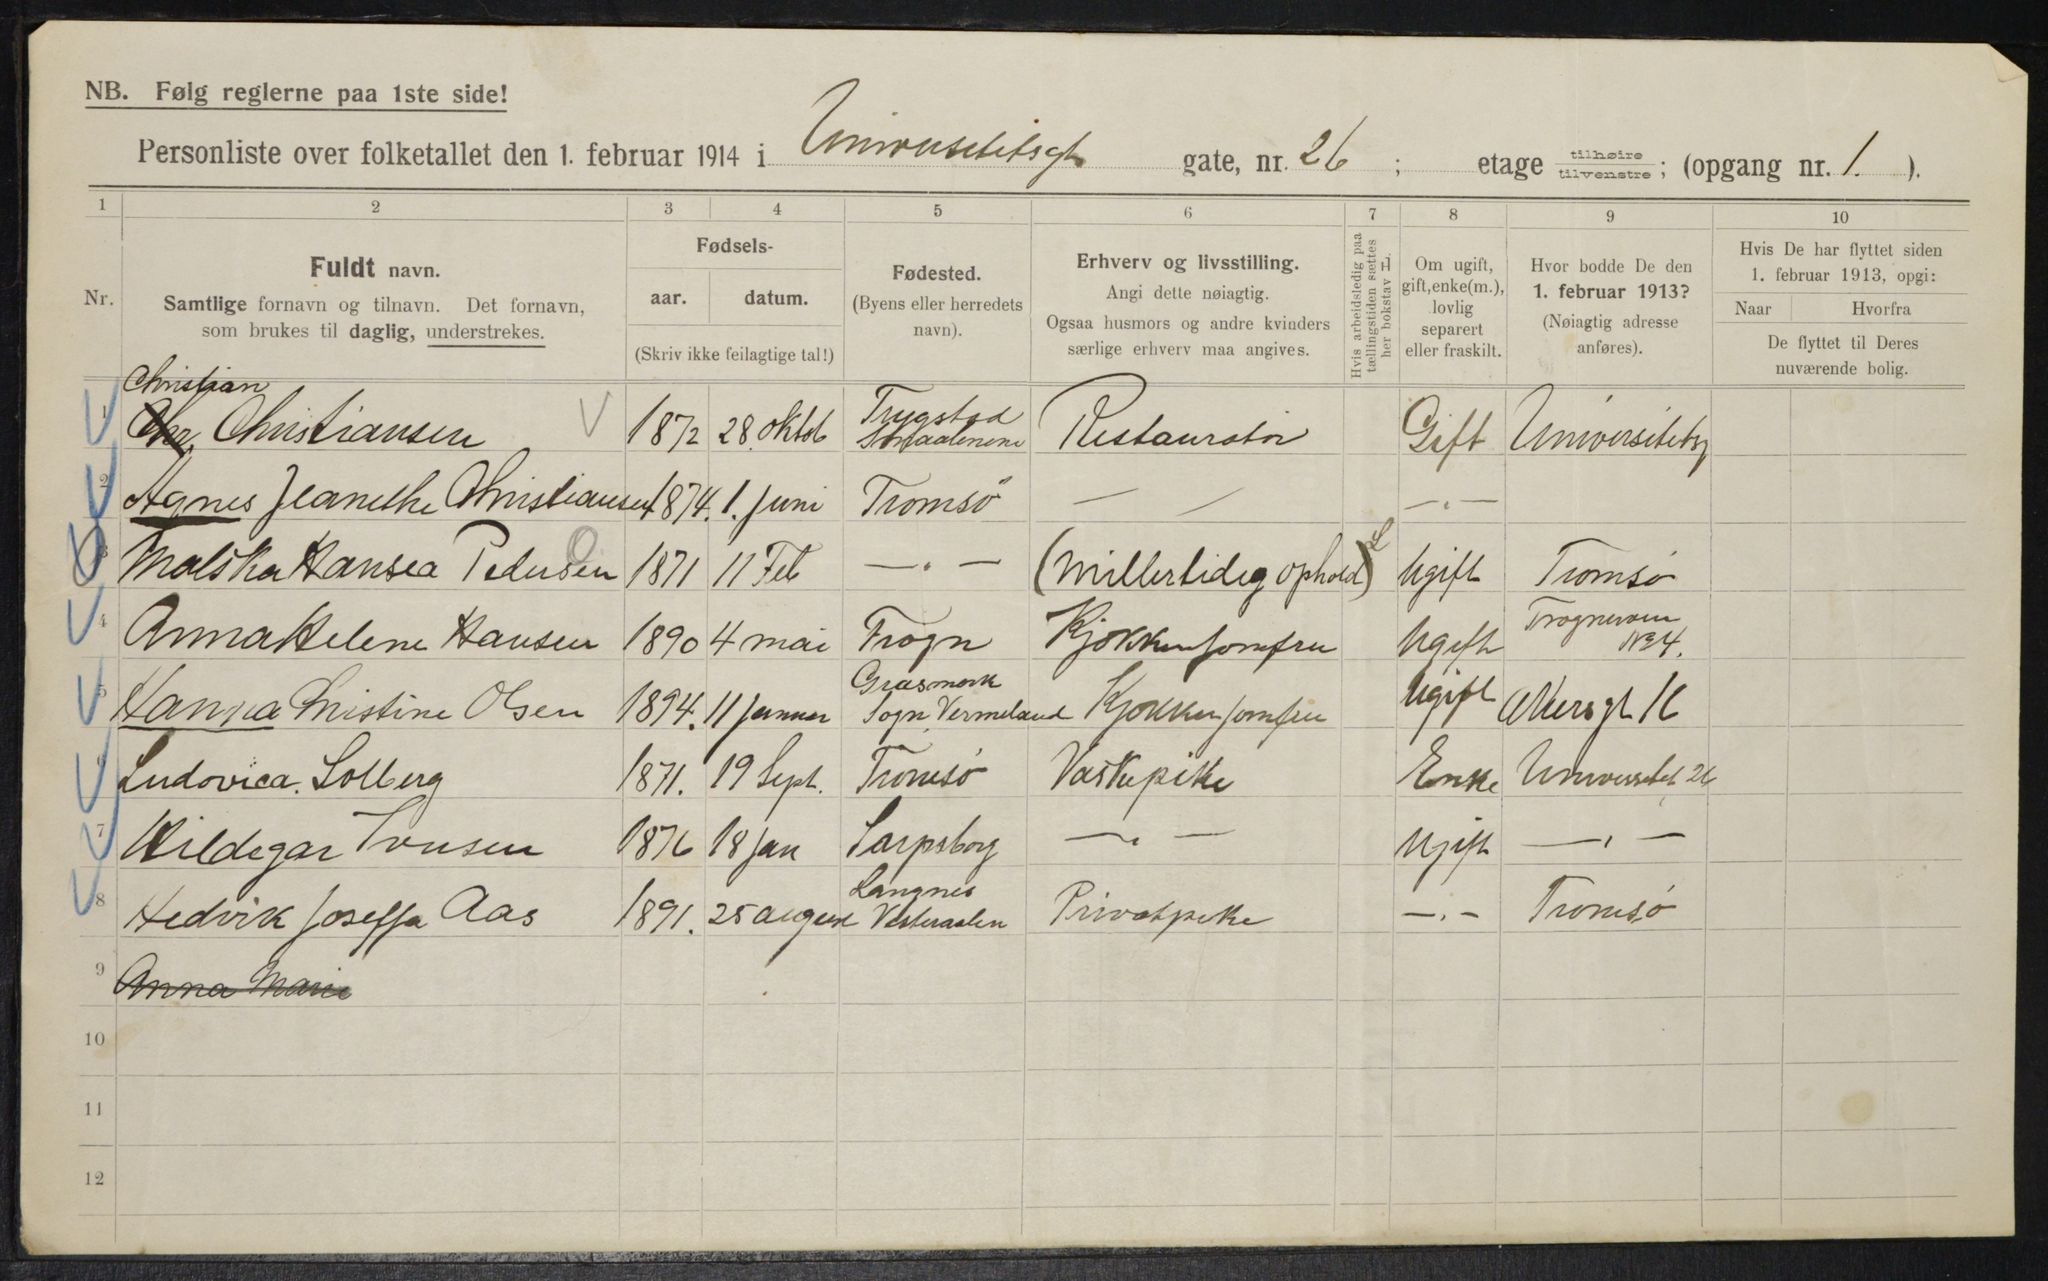 NB. Følg reglerne paa 1ste side!
Personliste over folketallet den 1. februar 1914 i Universitetsgt gate, nr. 26 ; etage tilhøire tilvenstre ; (opgang nr. 1. ).
1 2 3 4 5 6 7 8 9 10
Nr.
Fuldt navn.
Samtlige fornavn og tilnavn. Det fornavn,
som brukes til daglig, understrekes.
Fødsels-
aar. datum.
(Skriv ikke feilagtige tal!)
Fødested.
(Byens eller herredets
navn).
Erhverv og livsstilling.
Angi dette nøiagtig.
Ogsaa husmors og andre kvinders
særlige erhverv maa angives.
Hvis arbeidsledig paa
tællingstiden sættes
her bokstav L
Om ugift,
gift, enke(m.),
lovlig
separert
eller fraskilt.
Hvor bodde De den
1. februar 1913?
(Nøiagtig adresse
anføres).
Hvis De har flyttet siden
1. februar 1913, opgi:
Naar Hvorfra
De flyttet til Deres
nuværende bolig.
Christian
1 Chr. Christiansen 1872 28. oktob Trygstad Smaalenene Restauratør Gift Universitetsg
2 Agnes Jeanethe Christiansen 1874. 1. Juni Tromsö — — — " —
3 Malska Hansea Pedersen 1871 11 Feb — " — (Millertidig ophold) L Ugift Tromsø
4 Anna Helene Hansen 1890 4 mai Frogn Kjøkkenjomfru Ugift Frognerveien No 4.
5 Hanna Kristine Olsen 1894. 11 Januar Grasmark Sogn, Vermeland Kjøkkenjomfru Ugift Akersgt 16
6 Ludovica. Solberg 1871. 19 Sept. Tromsø Vaskepike Enke Universitet. 26
7 Hildegar Iversen 1876 18 Jan Sarpsborg — " — Ugift — " —
8 Hedvik Joseffa Aas 1891. 25 august Langnes Vesteraalen Privatpike — " — Tromsø
9 Anna Marie
10
11
12